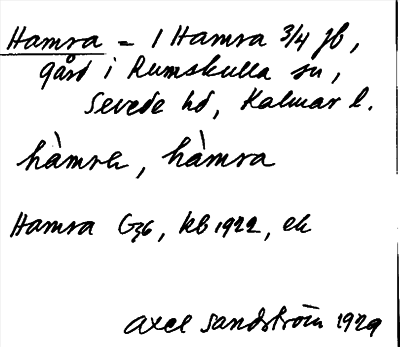 Hamra - 1 Hamra 3/4 jb,
gård i Rumskulla sn,
Sevede hd, Kalmar l.
hàmra, hàmra
Hamra Geb, kb 1922, ek
Axel Sandström 1929